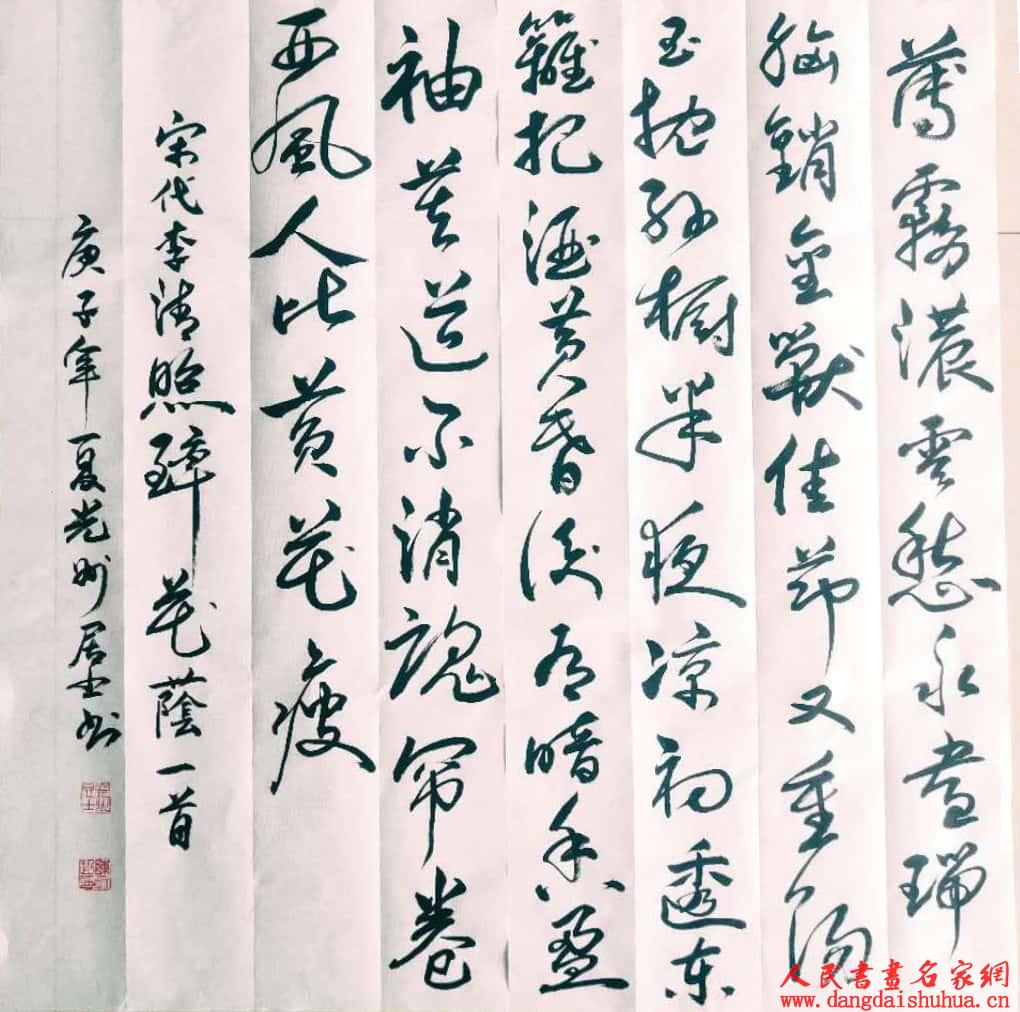 薄霧濃雲愁永晝瑞
腦銷金獸佳節又重陽
玉枕紗橱半夜凉初透东
籬把酒黄昏後有暗香盈
袖莫道不消魂帘卷
西風人比黄花瘦
宋代李清照醉花蔭一首
庚子年夏光州居士书
人民書畫名家網
www.dangdaishuhua.cn